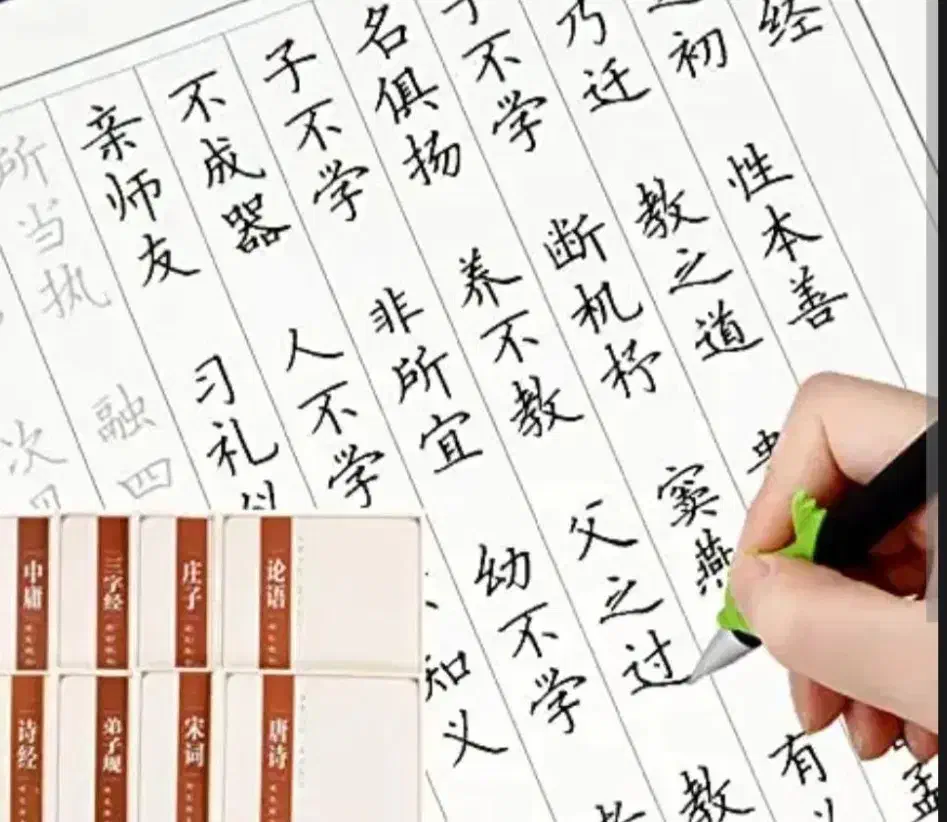 经
初 性本善
乃迁 教之道 孟
不学 断机杼 窦燕 有
名俱扬 养不教 父之过 教
子不学 非所宜 幼不学
不成器 人不学 知义
亲师友 习礼
所当执 融四
次
论语
庄子
三字经
中庸
唐诗
宋词
弟子规
诗经